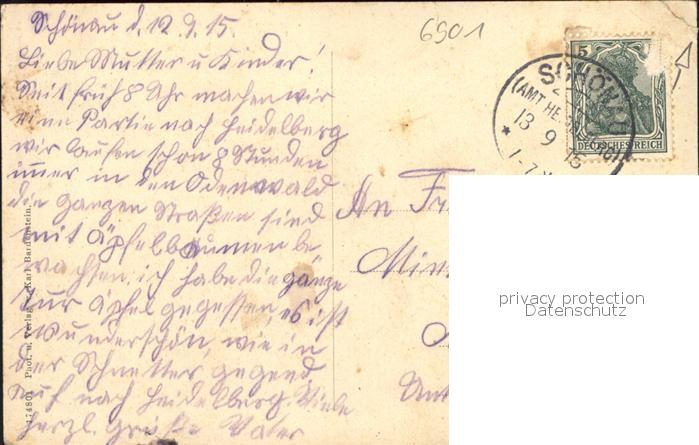 Schönau d. 12.9.15.
Liebe Mutter u Kinder!
Seit früh 8 Uhr machen wir
eine Partie nach Heidelberg
wir laufen schon 8 Stunden
immer in den Odenwald
die ganzen Straßen sind
mit Äpfelbäumen be
wachsen. ich habe die ganze
Tur Äpfel gegessen, es ist
Wunderschön, wie in
der Schnetter gegend
Auf nach Heidelberg. Viele
herzl. Grüße Vater
6901
SCHÖNAU
(AMT HEIDELBERG)
13 9 15
1-7
5
DEUTSCHES REICH
An Fr
privacy protection
Datenschutz
174801 Phot. u. Verlag v. Karl Bardenstein.